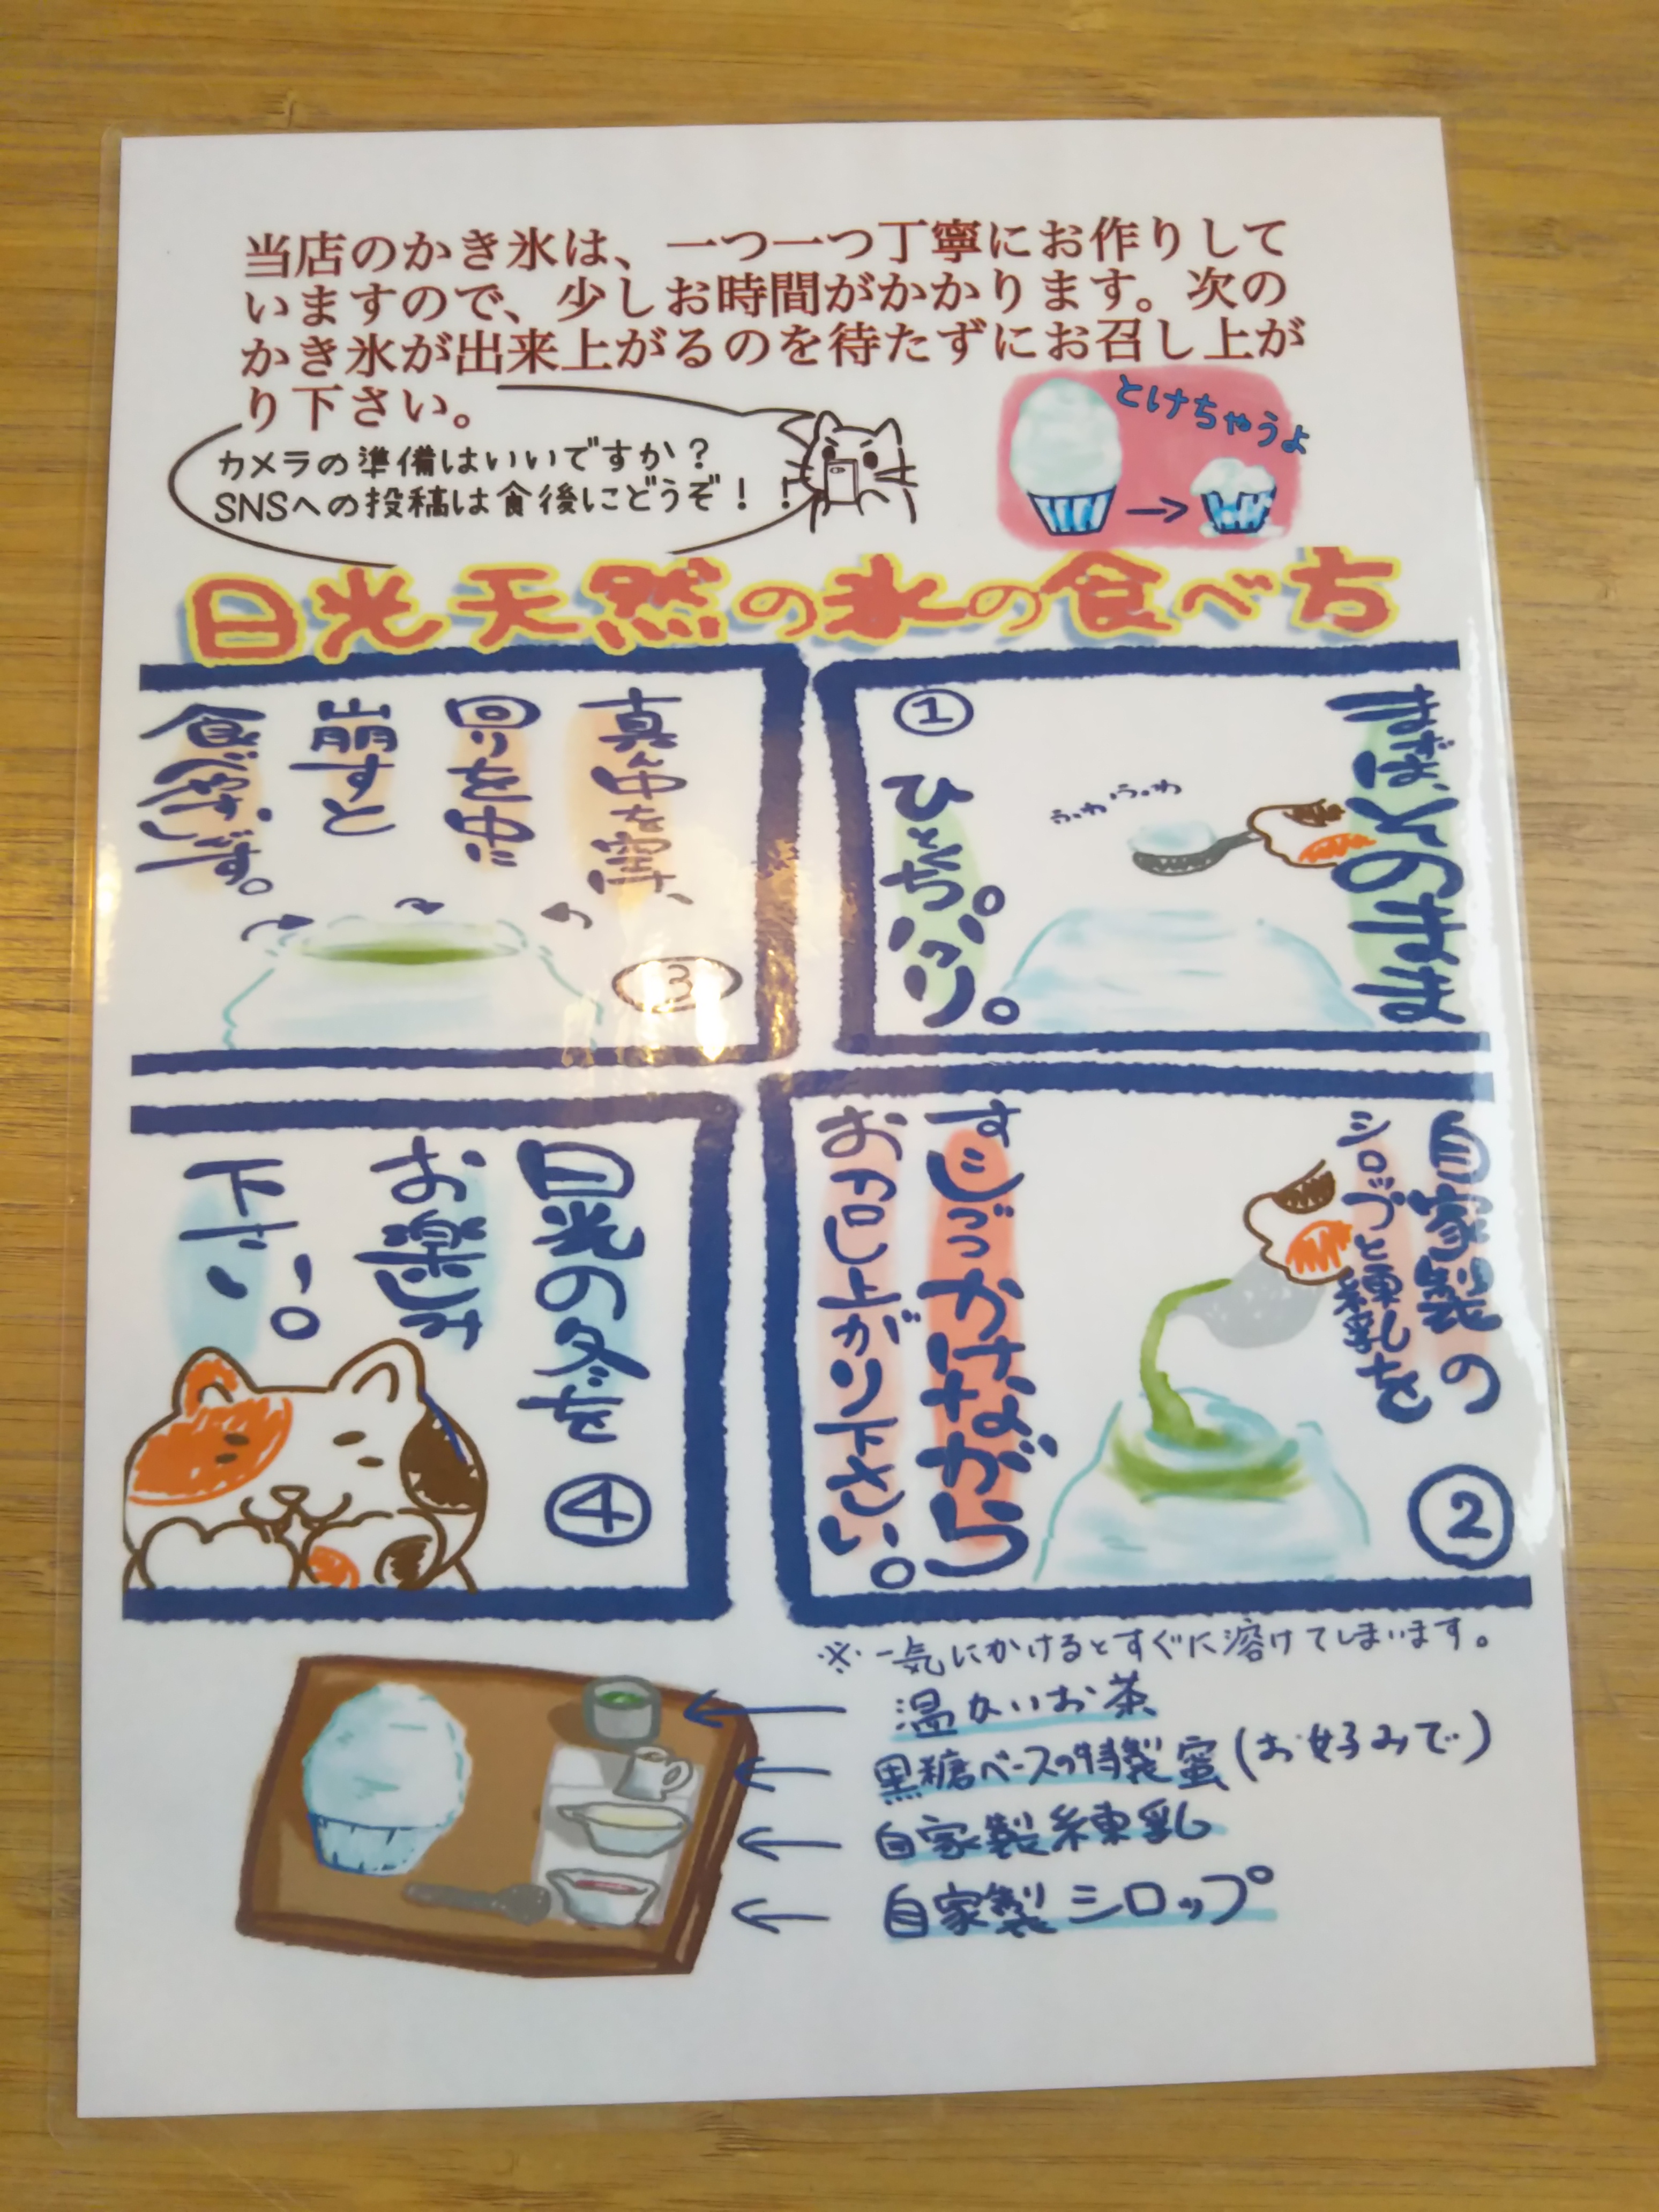 当店のかき氷は、一つ一つ丁寧にお作りして
いますので、少しお時間がかかります。次の
かき氷が出来上がるのを待たずにお召し上が
り下さい。
カメラの準備はいいですか？
SNSへの投稿は食後にどうぞ！！
とけちゃうよ
日光天然の氷の食べ方
まずは、そのまま
ふわふわ
①
ひとくちパクリ。
自家製の
シロップと練乳を
②
すこしづつかけながら
お召し上がり下さい。
真ん中を空け、
回りを中に
崩すと
食べやすいです。
③
日光の冬を
お楽しみ
下さい。
④
※一気にかけるとすぐに溶けてしまいます。
温かいお茶
黒糖ベースの特製蜜(お好みで)
自家製練乳
自家製シロップ